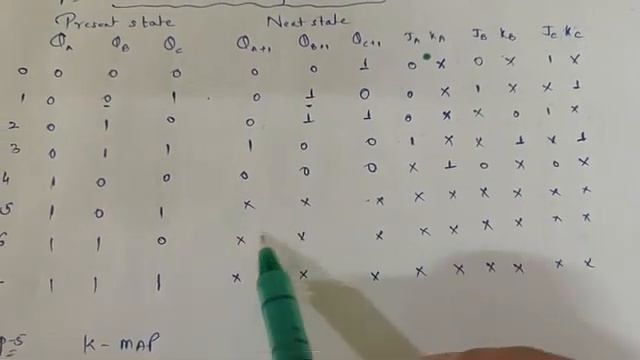 Present state Next state
QA QB QC QA+1 QB+1 QC+1 JA KA JB KB JC KC
0 0 0 0 0 0 1 0 x 0 x 1 x
1 0 0 1 0 1 0 0 x 1 x x 1
2 0 1 0 0 1 1 0 x x 0 1 x
3 0 1 1 1 0 0 1 x x 1 x 1
4 1 0 0 0 0 0 x 1 0 x 0 x
5 1 0 1 x x x x x x x x x
6 1 1 0 x x x x x x x x x
1 1 1 x x x x x x x x x
p-5 K-MAP